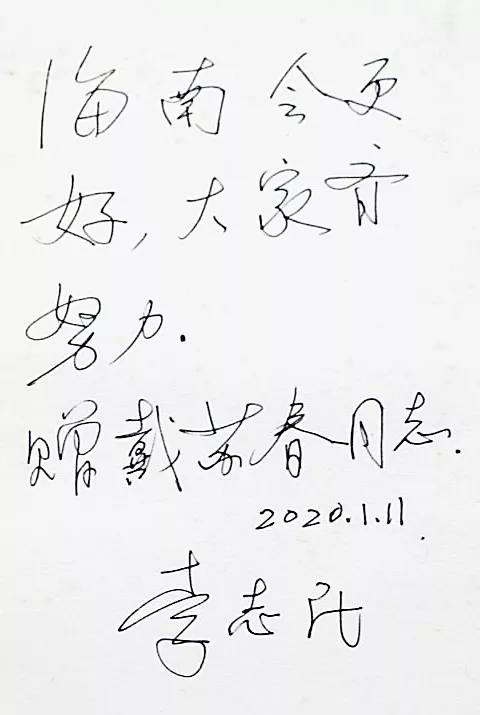 海南会更
好，大家齐
努力.
赠戴苏春同志.
2020.1.11.
李志民